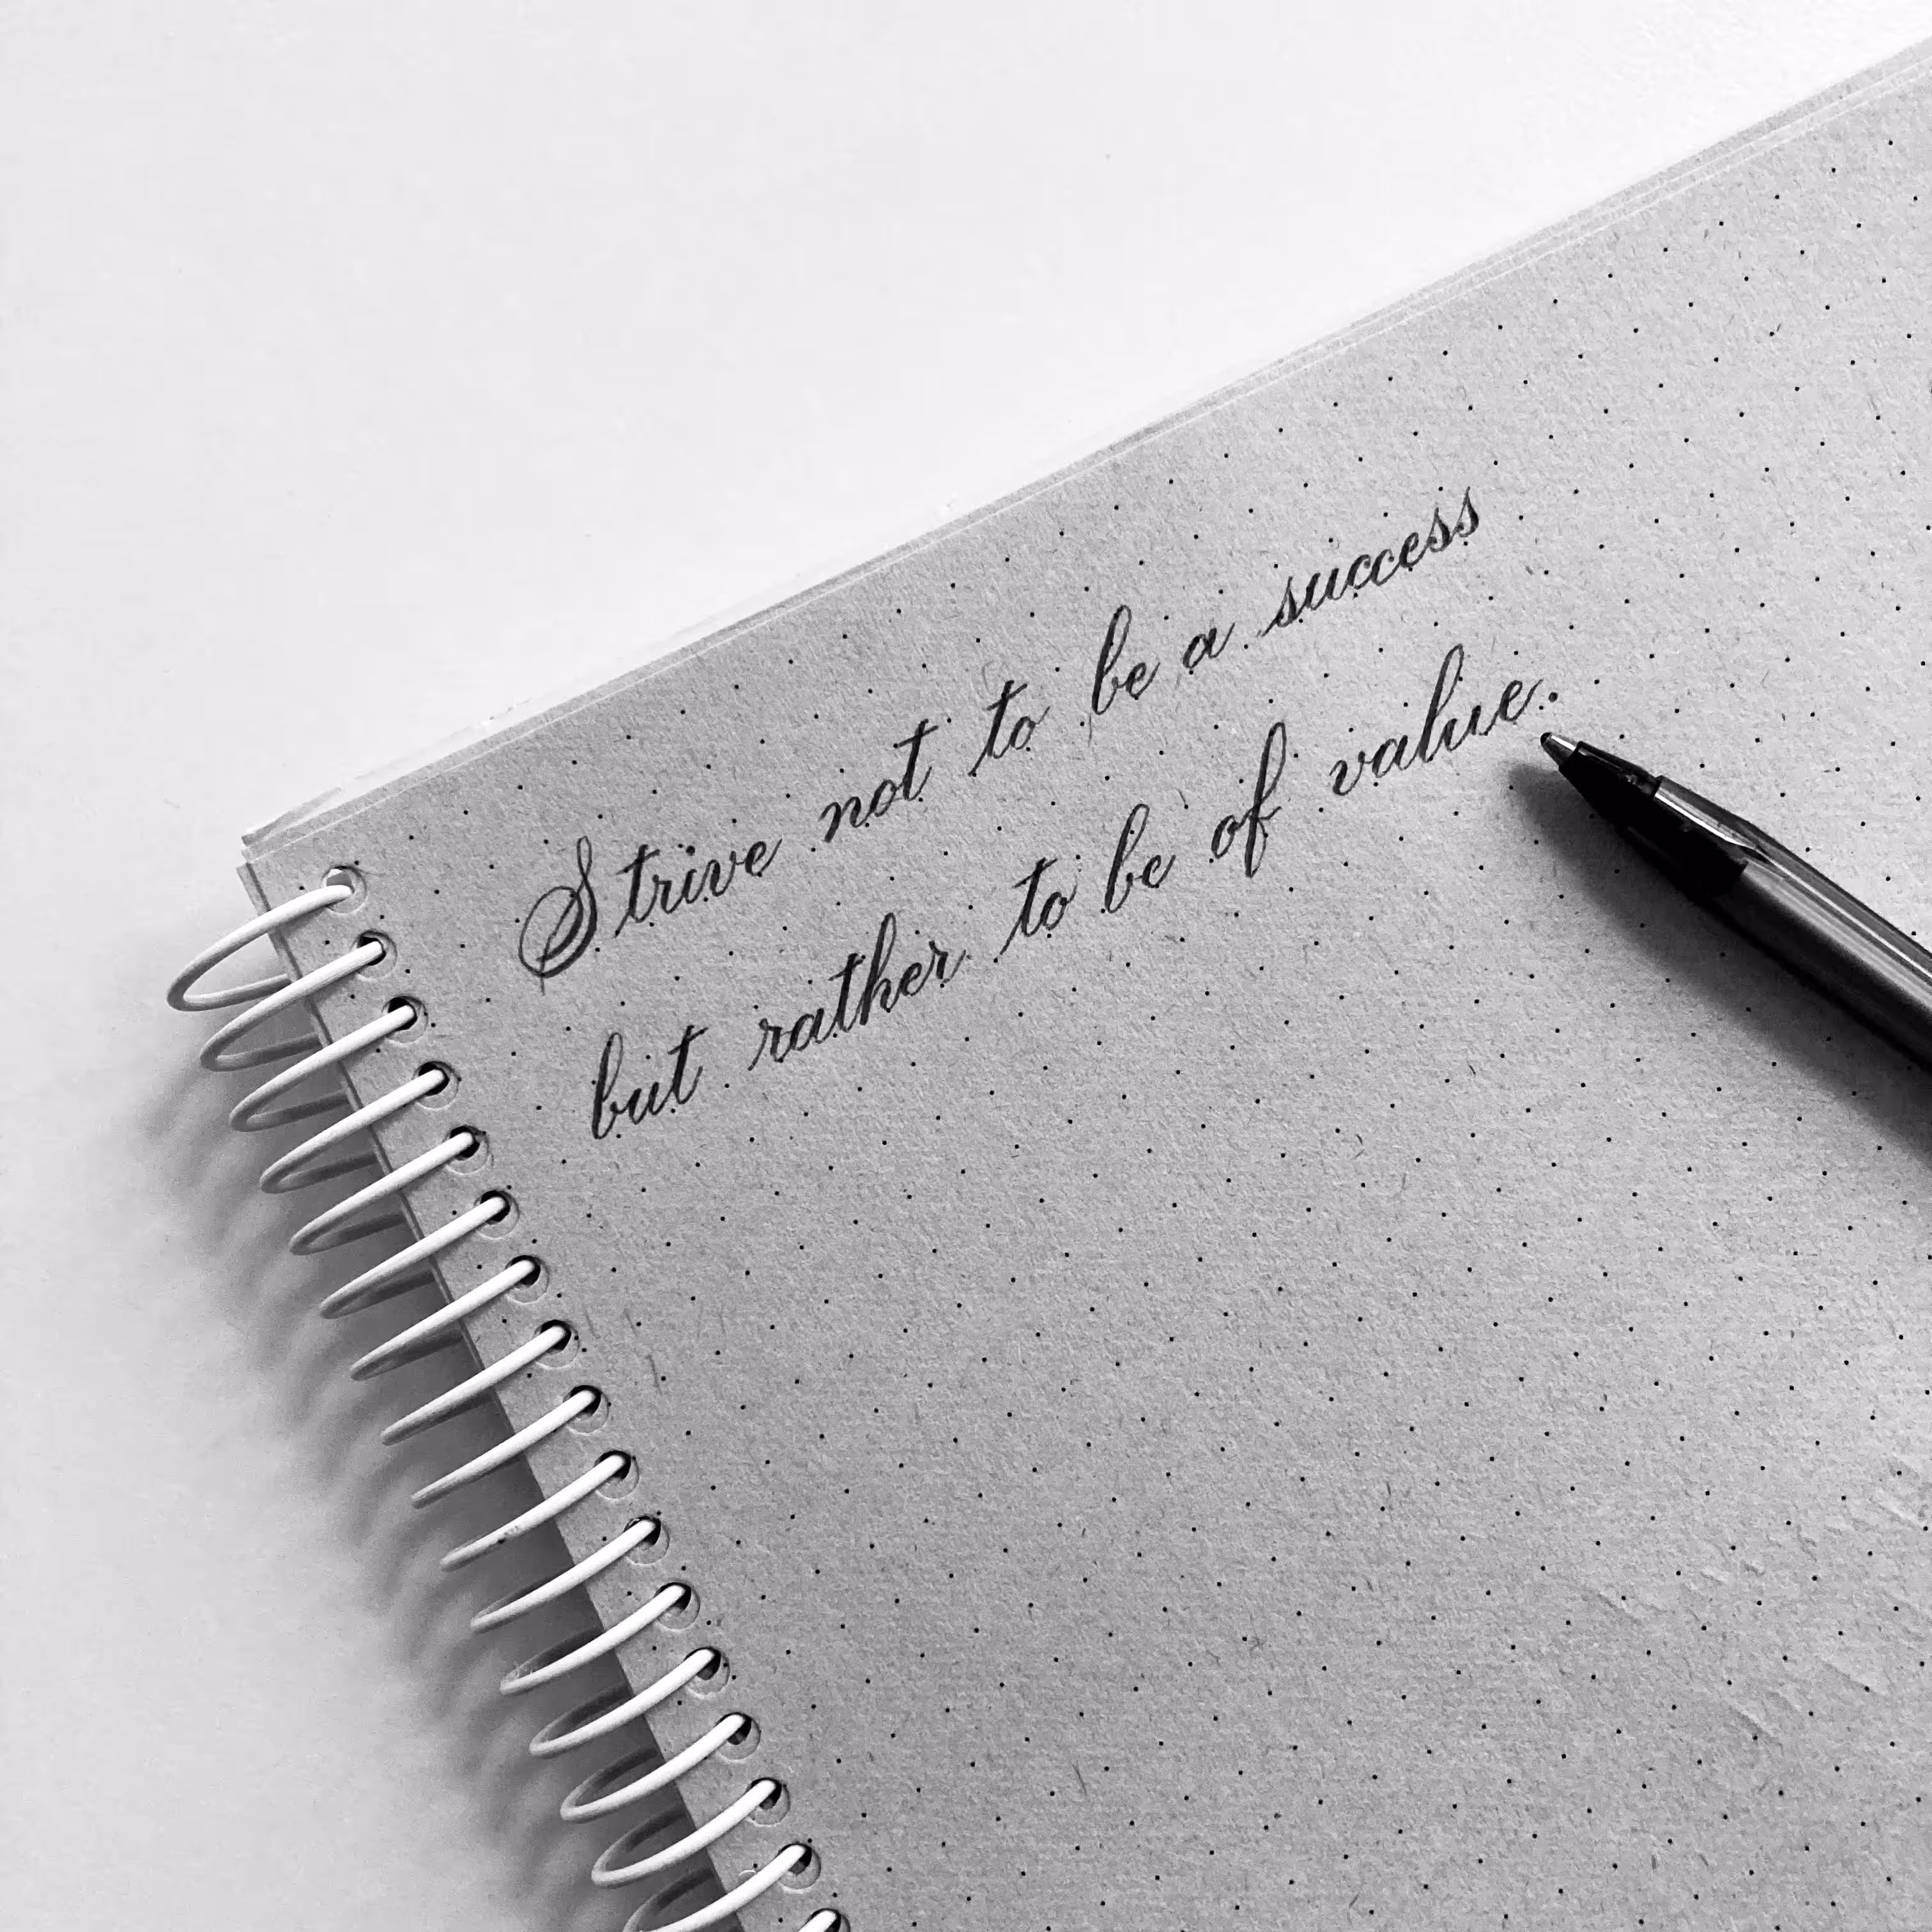 Strive not to be a success
but rather to be of value.